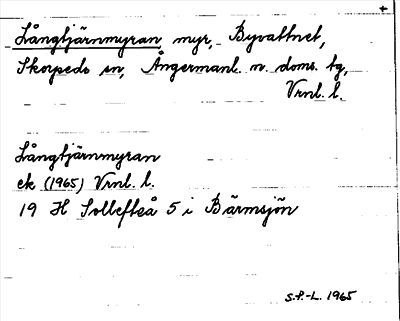 Långtjärnmyran, myr, Byvattnet,
Skorpeds sn, Ångermanl. n. doms. tg,
Vrnl. l.
Långtjärnmyran
ek (1965) Vrnl. l.
19 H Sollefteå 5 i Bärmsjön
S.P.-L. 1965